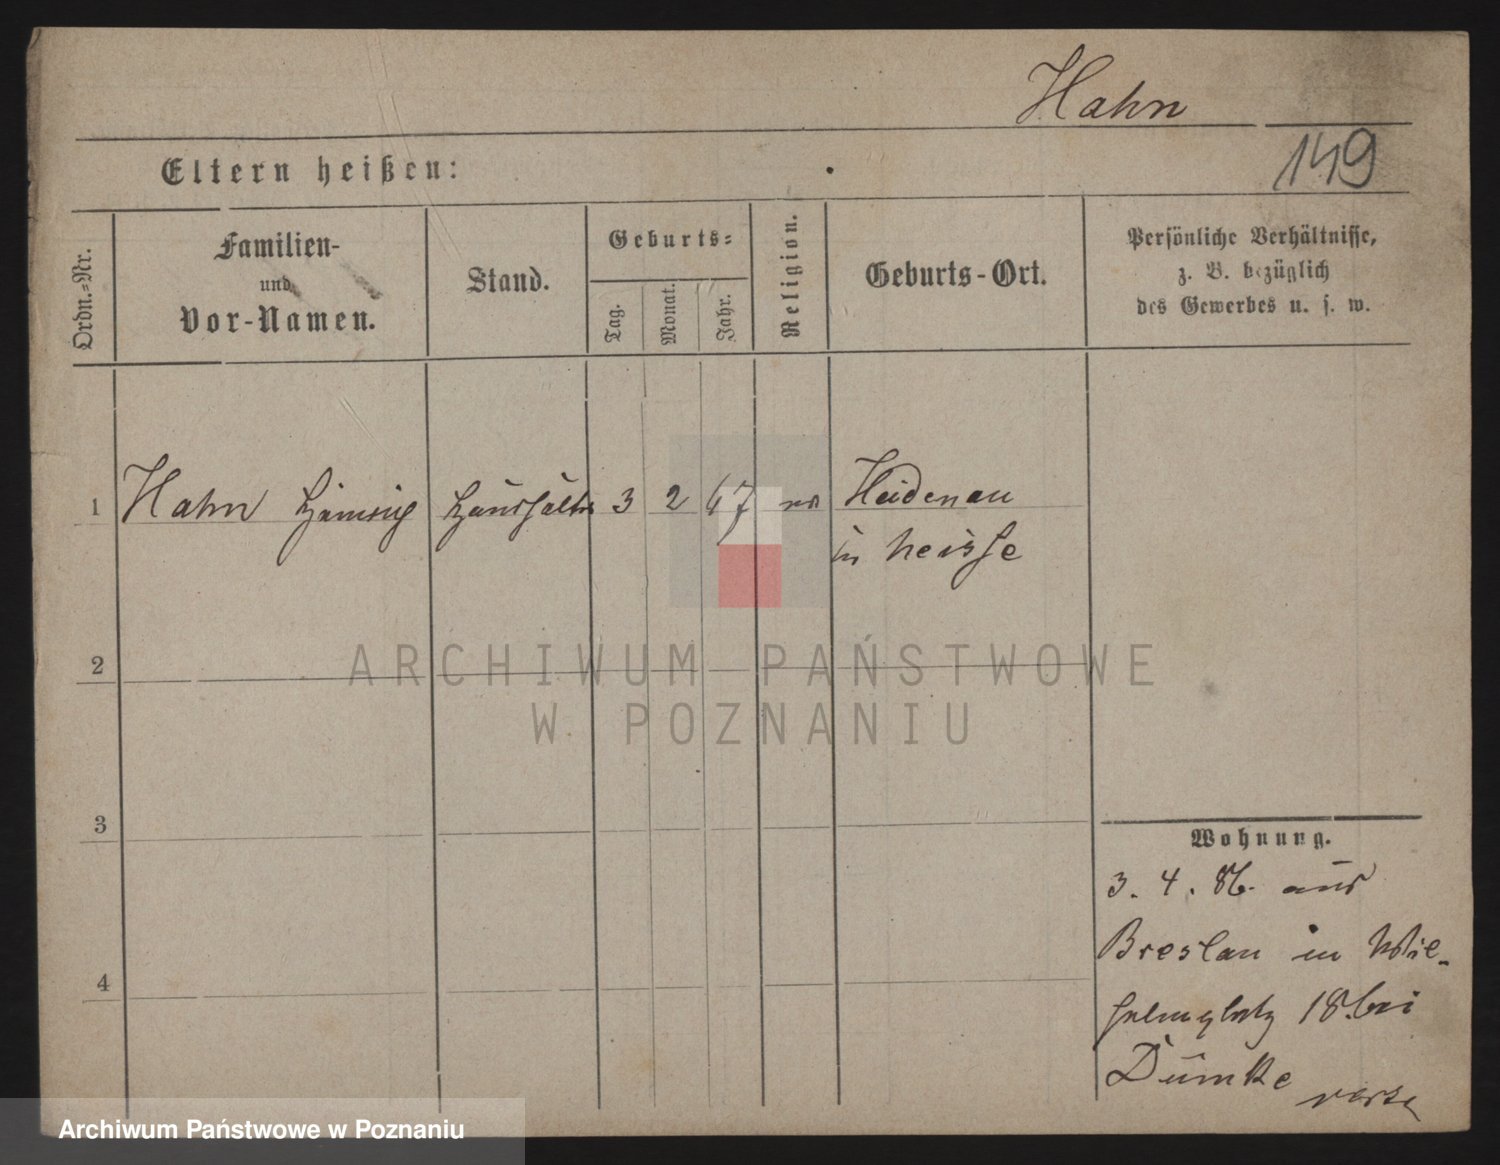 Hahn
149
Eltern heißen:
Ordn.-Nr.
Familien-
und
Vor-Namen.
Stand.
Geburts-
Tag.
Monat.
Jahr.
Religion.
Geburts-Ort.
Persönliche Verhältnisse,
z. B. bezüglich
des Gewerbes u. s. w.
1 Hahn Heinrich Haushälter 3 2 67 Heidenau
in Neisse
2
3
4
Wohnung.
3. 4. 86. aus
Breslau in Wil-
helmplatz 18 bei
Dümke
ARCHIWUM PAŃSTWOWE
W POZNANIU
Archiwum Państwowe w Poznaniu